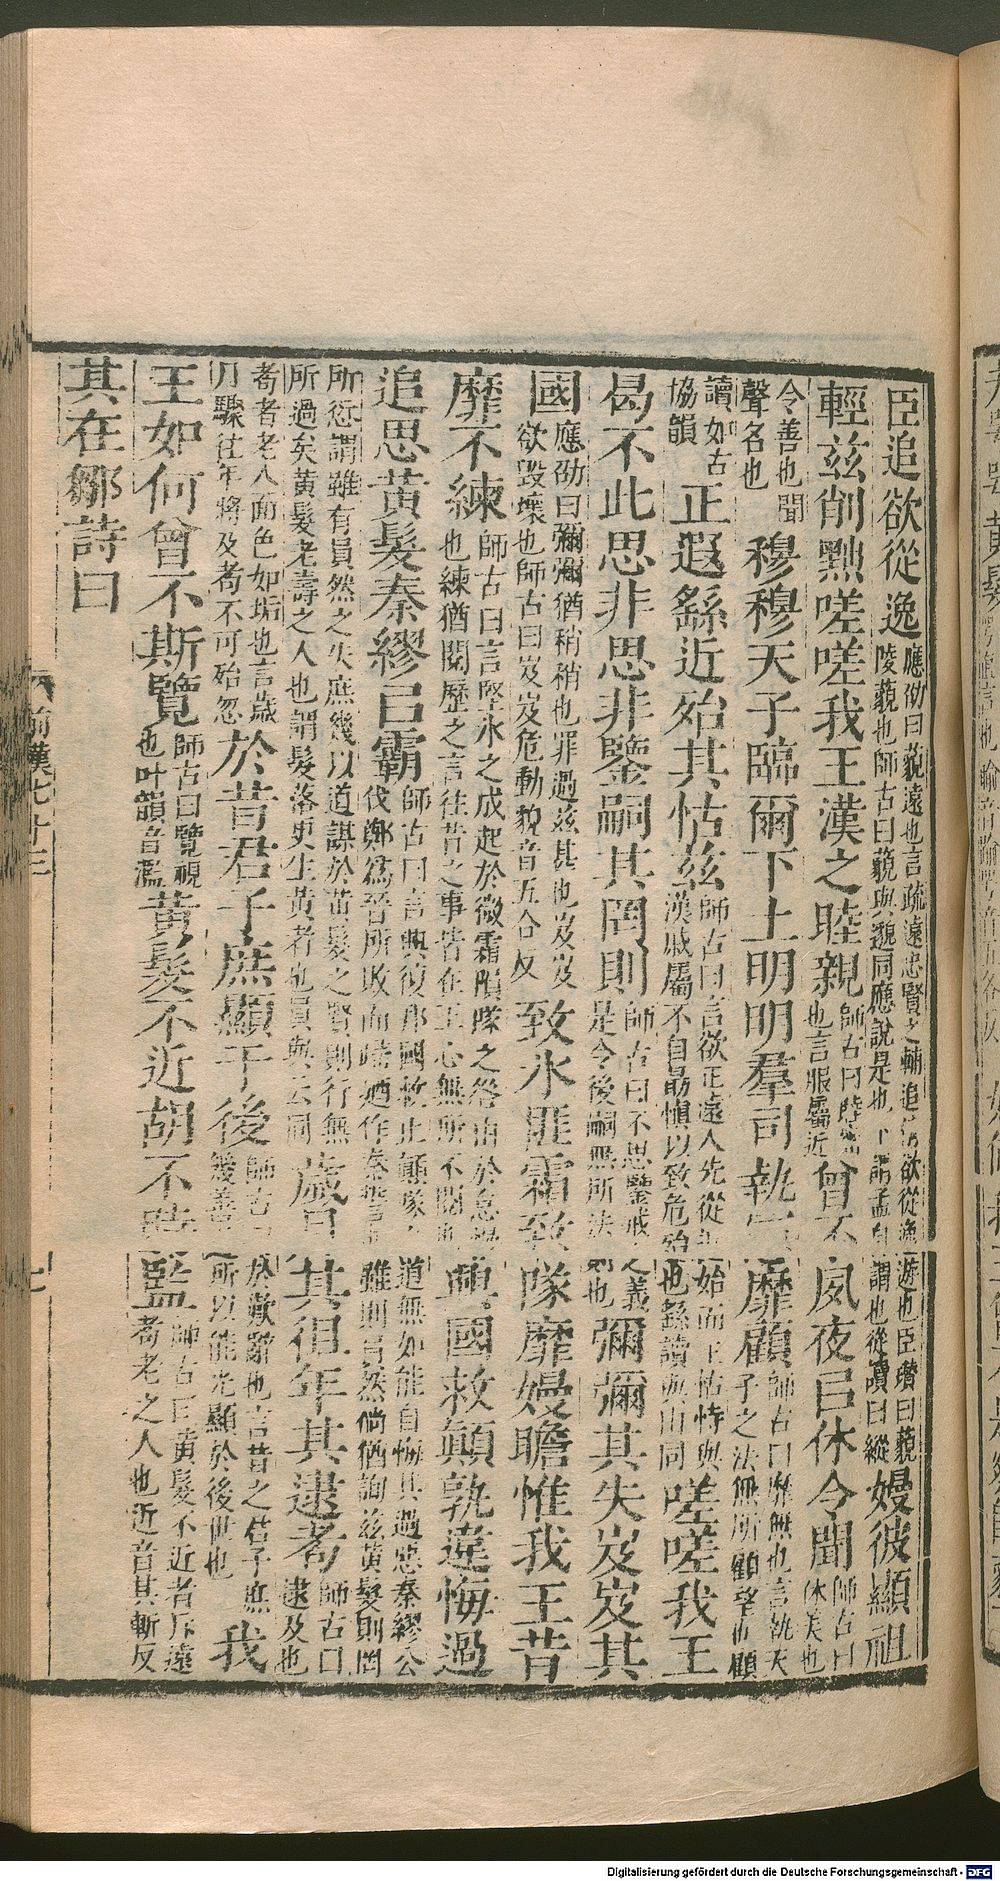 臣追欲從逸應劭曰藐遠也言疏遠忠賢之輔追情欲從逸遊也臣瓚曰藐陵藐也師古曰藐與邈同應說是也下謂孟自謂也從讀曰縱嫚彼顯祖
輕茲削黜嗟嗟我王漢之睦親師古曰睦密也言服屬近曾不夙夜㠯休令聞師古曰休美也
令善也聞聲名也穆穆天子臨爾下土明明羣司執憲靡顧師古曰靡無也言執天子之法無所顧望也顧
讀如古協韻正遐繇近殆其怙茲師古曰言欲正遠人先從近始而王怙恃與漢戚屬不自勗慎以致危殆也繇讀與由同嗟嗟我王
曷不此思非思非鑒嗣其罔則師古曰不思鑒戒之義是令後嗣無所法則也彌彌其失岌岌其
國應劭曰彌彌猶稍稍也罪過茲甚也岌岌欲毀壞也師古曰岌岌危動貌音五合反致冰匪霜致隊靡嫚瞻惟我王昔
靡不練師古曰言堅冰之成起於微霜隕隊之咎由於怠嫚也練猶閱歷之言往昔之事皆在王心無所不閱也興國救顛孰違悔過
追思黃髮秦繆㠯霸師古曰言興復邦國救止顛隊之道無如能自悔其過惡秦繆公伐鄭爲晉所敗而歸廼作秦誓曰雖則員然尚猶詢茲黃髮則罔
所愆謂雖有員然之失庶幾以道謀於黃髮之賢則行無所過矣黃髮老壽之人也謂髮落更生黃者也員與云同歲月其徂年其逮耇師古曰逮及也
耇者老人面色如垢也言歲月驟往年將及耇不可殆忽於昔君子庶顯于後師古曰於歎辭也言昔之君子庶幾善道所以能光顯於後世也我
王如何曾不斯覽師古曰覽視也叶韻音濫黃髮不近胡不時監師古曰黃髮不近者斥遠耇老之人也近音其靳反
其在鄒詩曰
前漢七十三 七
Digitalisierung gefördert durch die Deutsche Forschungsgemeinschaft - DFG